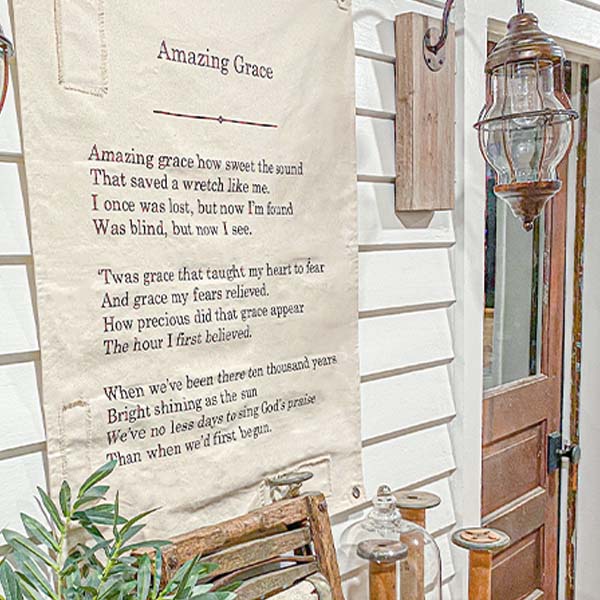 Amazing Grace
Amazing grace how sweet the sound
That saved a wretch like me.
I once was lost, but now I'm found
Was blind, but now I see.
'Twas grace that taught my heart to fear
And grace my fears relieved.
How precious did that grace appear
The hour I first believed.
When we've been there ten thousand years
Bright shining as the sun
We've no less days to sing God's praise
Than when we'd first begun.